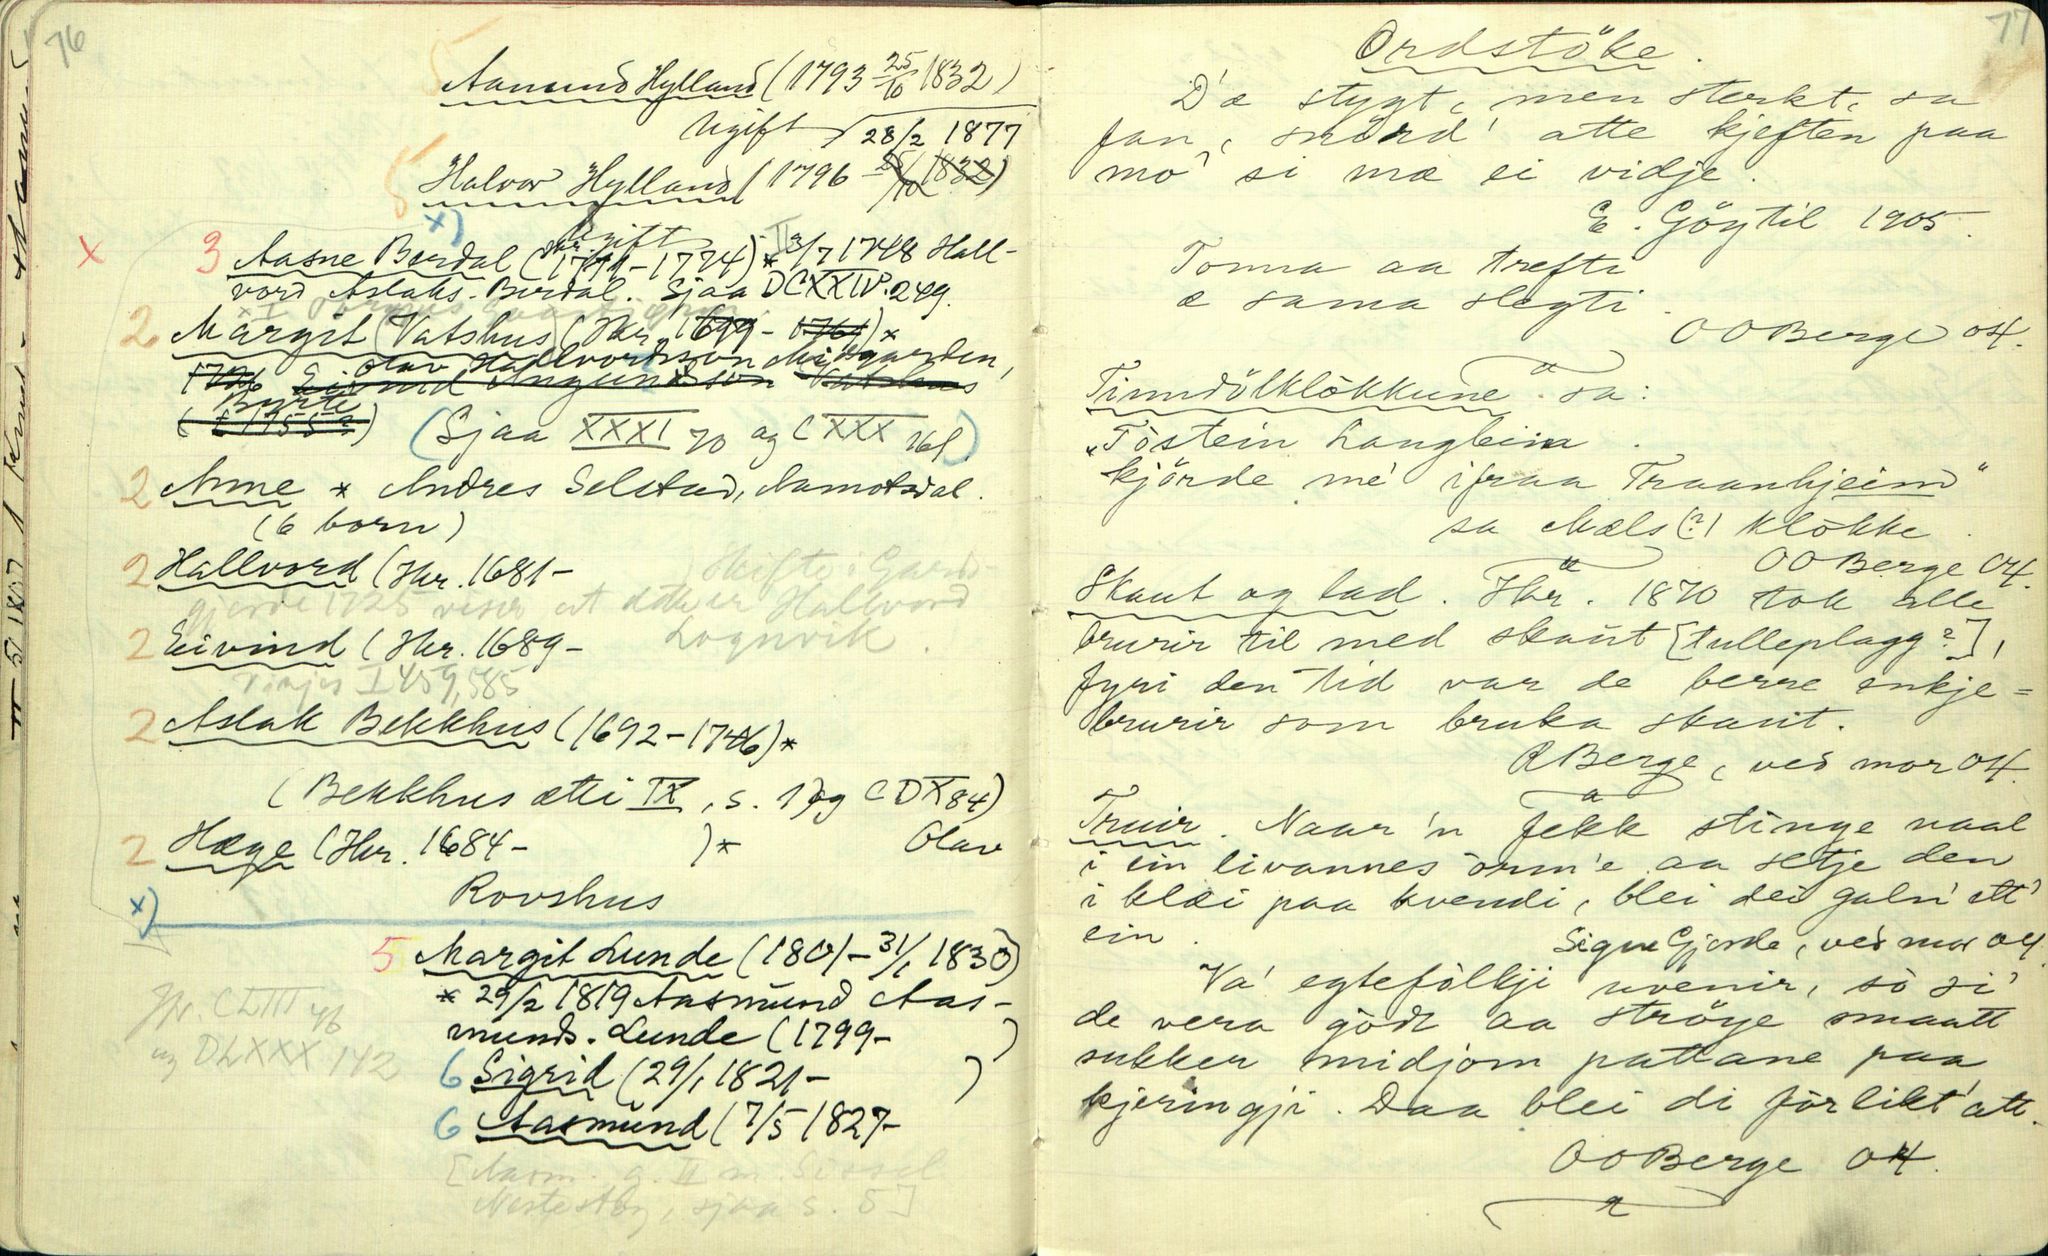 76
Aanund Hylland (1793 25/10 1832)
Ugift 28/2 1877
Halvor Hylland (1796 – 25/10 1832)
x)
Ugift
x 3 Aasne Berdal (Fkr. 1771 – 1774) * II 3/7 1748 Hall-
vord Aslaks. Berdal. Sjaa DCXXIV. 249.
2 Margit (Vatshus) (Fkr. 1699 – 1761) *
Olav Hallvordsson Midgarden,
1726 Eivind Aagundsson Vatshus
Byrte
( 1755?)
(Sjaa XXXI 70 og CXXX 161.)
2 Anne * Andres Selstad, Aamotsdal.
(6 born)
2 Hallvord (Fkr. 1681 –
Skifte i Gards-
gjerde 1725 viser at dette er Hallvord
Lognvik.
2 Eivind (Fkr. 1689 –
Vinjes I 459, 585
2 Aslak Bekkhus (1692 – 1746) *
(Bekkhus ætti IX, s. 1) og CDX 84)
2 Hæge (Fkr. 1684 – ) * Olav
Rovshus
x)
5 Margit Lunde (1801 – 31/1 1830)
* 29/2 1819 Aasmund Aas-
munds. Lunde (1799 – )
Jfr. CLIII 46
og DLXXX 142
6 Sigrid (29/1 1821 – )
6 Aasmund (7/5 1827 –
[Aasm. g. II m. Sissel
Nestestog, sjaa s. 5]
77
Ordstöke.
D'æ stygt, men sterkt, sa
fan, snörd' atte kjeften paa
mo' si mæ ei vidje.
E. Göytil 1905.
Tonna aa trefti
æ sama slegti.
OOBerge 04.
Tinndölklökkune sa:
"Töstein Langbein
kjörde me' ifraa Traanhjeim"
sa Mæls(?) klökke.
OOBerge 04.
Skaut og lad. Fkr. 1870 tok alle
brurir til med skaut [tulleplagg?],
fyri den tid var de berre enkje=
brurir som bruka skaut.
RBerge, ved mor 04.
Truir. Naar'n fekk stinge naal
i ein livannes orm'e aa setje den
i klæi paa kvendi, blei dei galn' ett'
ein.
Signe Gjerde, ved mor 04.
Va' egtefölkji uvenir, so si'
de vera godt aa ströye smaatt
sukker midjom pattane paa
kjeringji. Daa blei di forlikt' att.
OOBerge 04.